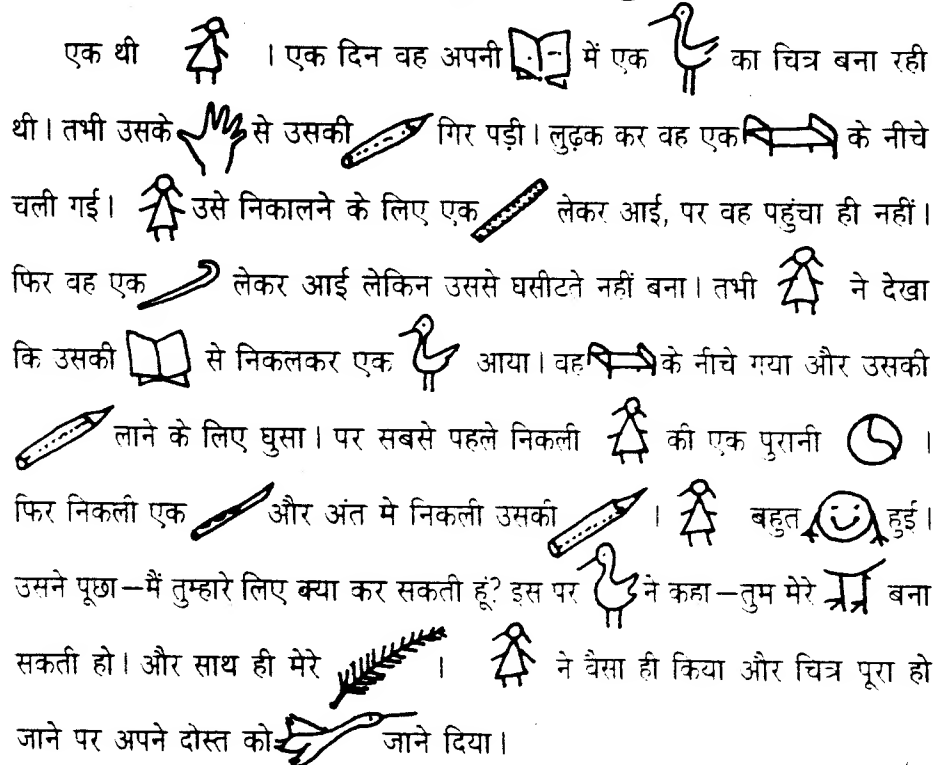 एक थी । एक दिन वह अपनी में एक का चित्र बना रही
थी। तभी उसके से उसकी गिर पड़ी। लुढ़क कर वह एक के नीचे
चली गई। उसे निकालने के लिए एक लेकर आई, पर वह पहुंचा ही नहीं।
फिर वह एक लेकर आई लेकिन उससे घसीटते नहीं बना। तभी ने देखा
कि उसकी से निकलकर एक आया। वह के नीचे गया और उसकी
लाने के लिए घुसा। पर सबसे पहले निकली की एक पुरानी ।
फिर निकली एक और अंत मे निकली उसकी । बहुत हुई।
उसने पूछा—मैं तुम्हारे लिए क्या कर सकती हूं? इस पर ने कहा—तुम मेरे बना
सकती हो। और साथ ही मेरे । ने वैसा ही किया और चित्र पूरा हो
जाने पर अपने दोस्त को जाने दिया।